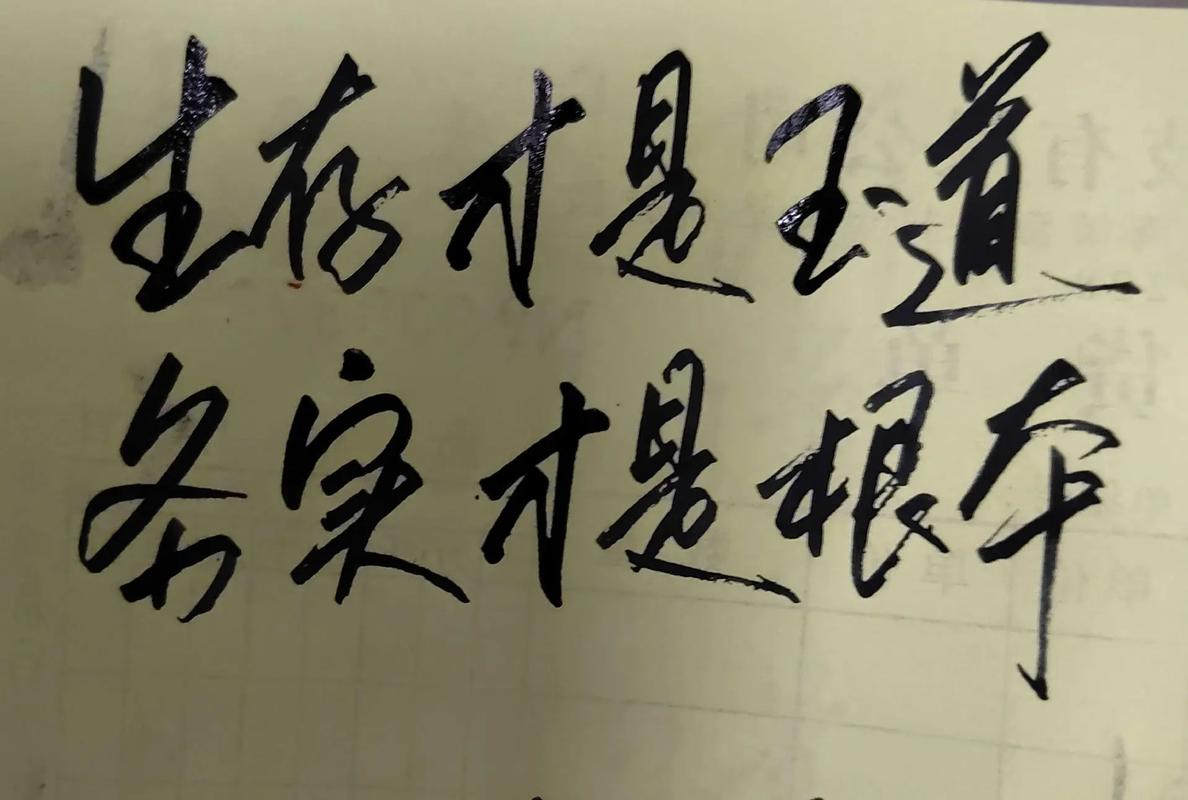 生存才是王道
务实才是根本